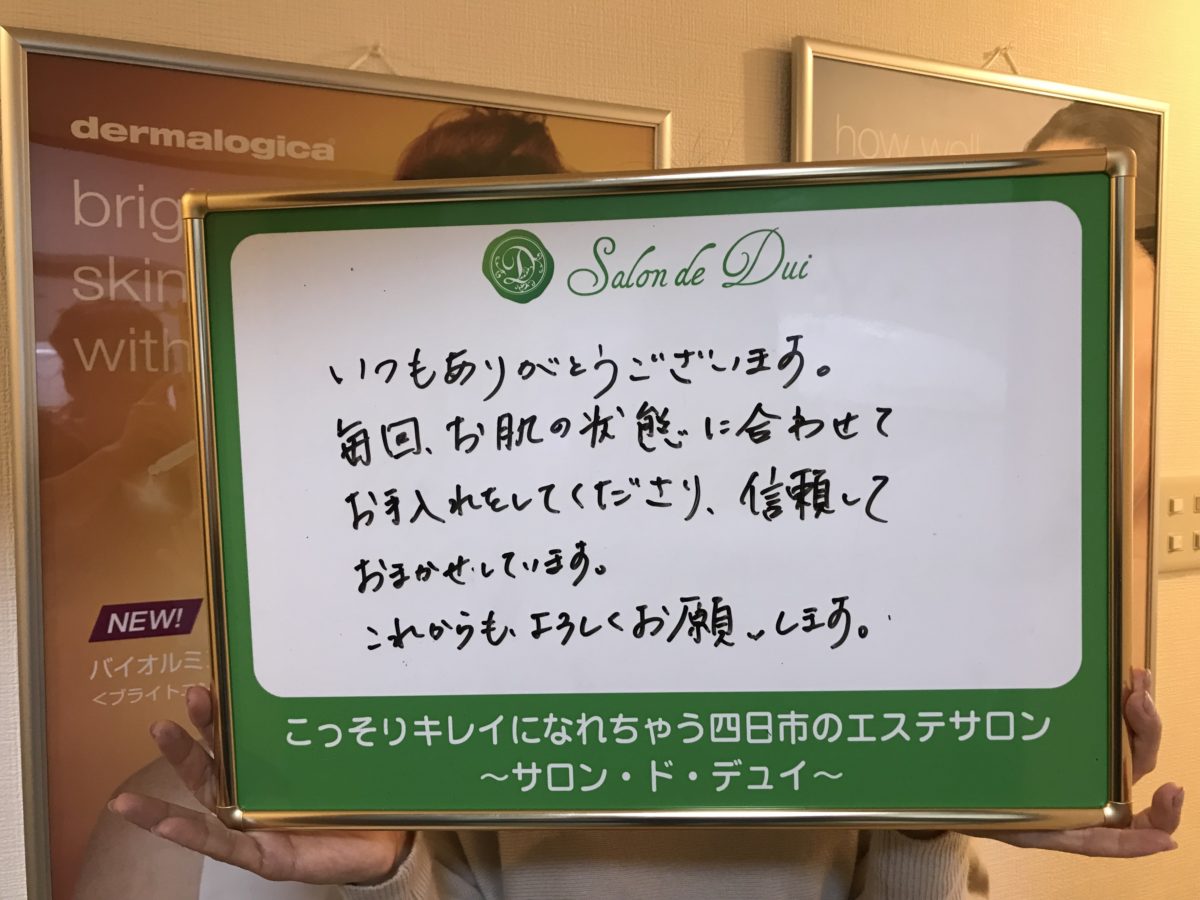 dermalogica
brig
skin
with
NEW!
バイオルミ
<ブライトエ
how well
Salon de Dui
いつもありがとうございます。
毎回、お肌の状態に合わせて
お手入れをしてくださり、信頼して
おまかせしています。
これからも、よろしくお願いします。
こっそりキレイになれちゃう四日市のエステサロン
～サロン・ド・デュイ～